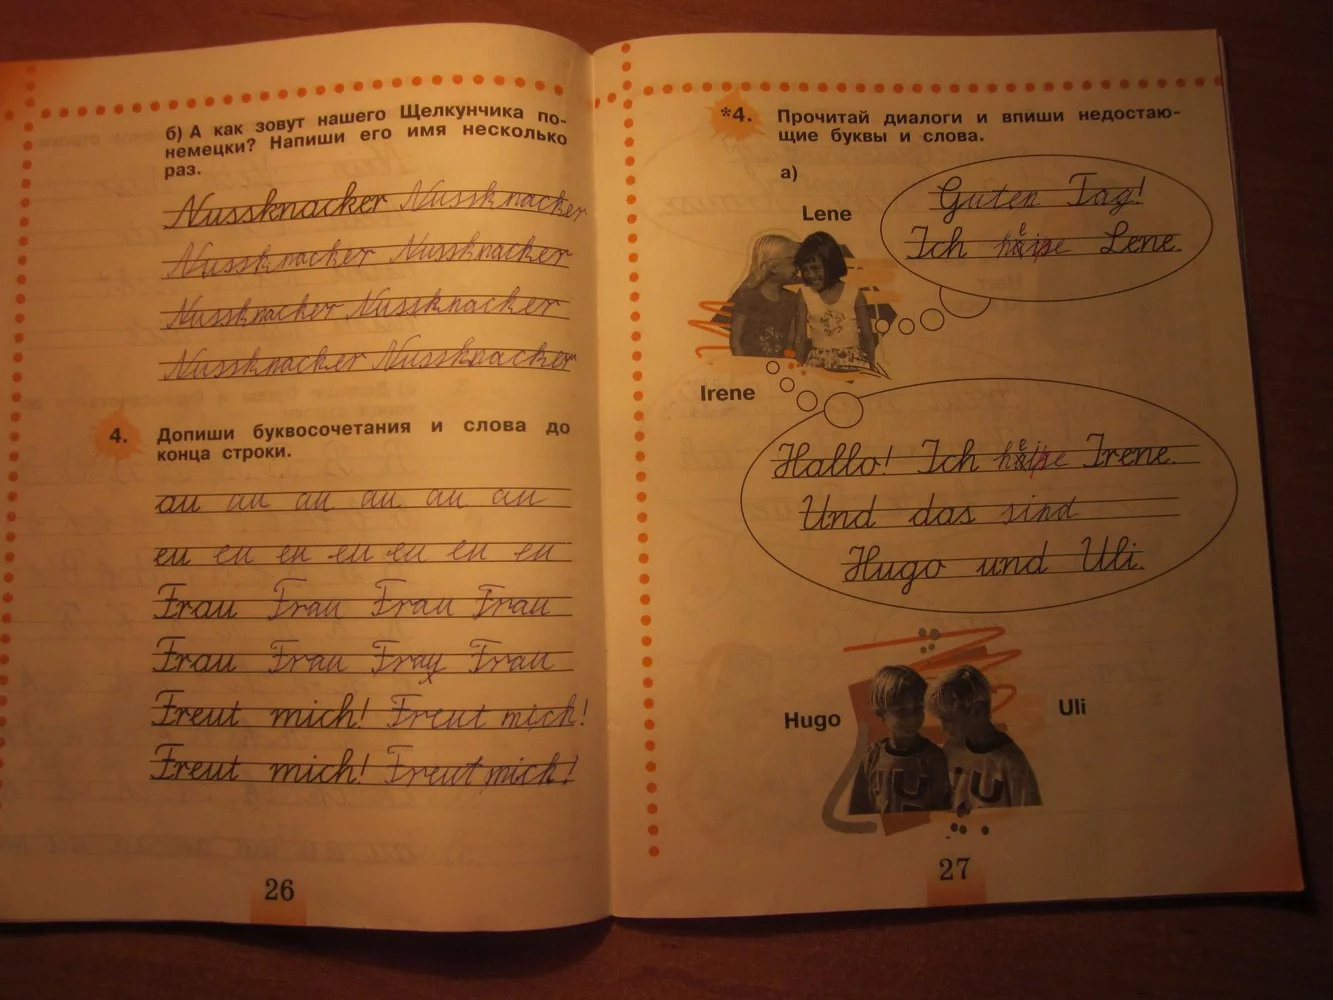 б) А как зовут нашего Щелкунчика по-
немецки? Напиши его имя несколько
раз.
Nussknacker Nussknacker
Nussknacker Nussknacker
Nussknacker Nussknacker
Nussknacker Nussknacker
4. Допиши буквосочетания и слова до
конца строки.
au au au au au au
eu eu eu eu eu eu eu
Frau Frau Frau Frau
Frau Frau Frau Frau
Freut mich! Freut mich!
Freut mich! Freut mich!
26
*4. Прочитай диалоги и впиши недостаю-
щие буквы и слова.
а)
Lene
Guten Tag!
Ich heiße Lene.
Irene
Hallo! Ich heiße Irene.
Und das sind
Hugo und Uli.
Hugo
Uli
27